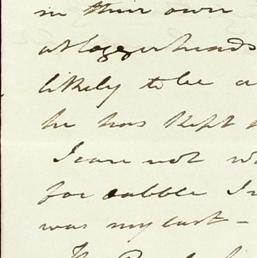 in their own
at loggerheads
likely to be a
he has kept
I care not w
for cobble I
was my last –